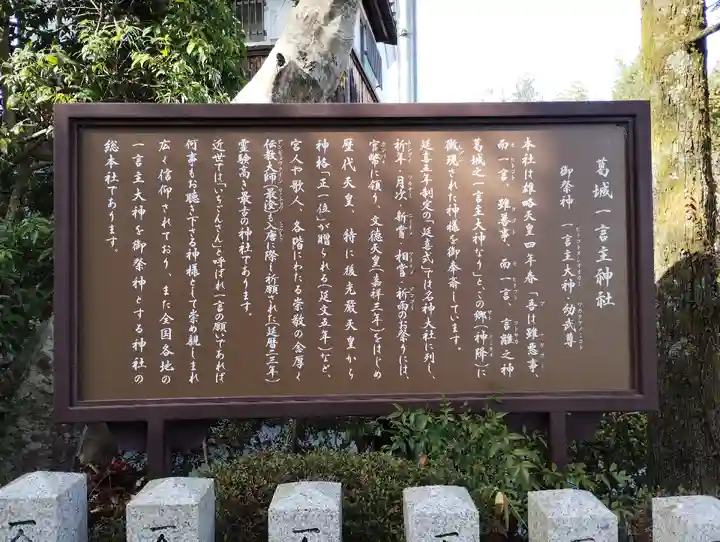 葛城一言主神社
御祭神 一言主大神・幼武尊
本社は雄略天皇四年春「吾は雖悪事、
而一言、雖善事、而一言、言離之神
葛城之一言主大神なり」と、この郷(神降)に
顕現された神様を御奉斎しています。
延喜五年制定の「延喜式」では名神大社に列し、
祈年・月次・新嘗・相嘗・祈雨のお祭りは、
官幣に預り、文徳天皇(嘉祥三年)をはじめ
歴代天皇、特に後光厳天皇から
神格「正一位」が贈られる(延文五年)など、
宮人や歌人、各階にわたる崇敬の念厚く
伝教大師(最澄)も入唐に際し祈願された(延暦二三年)
霊験高き最古の神社であります。
近世では「いちごんさん」と呼ばれ一言の願いであれば
何事もお聴き下さる神様として崇め親しまれ
広く信仰されており、また全国各地の
一言主大神を御祭神とする神社の
総本社であります。